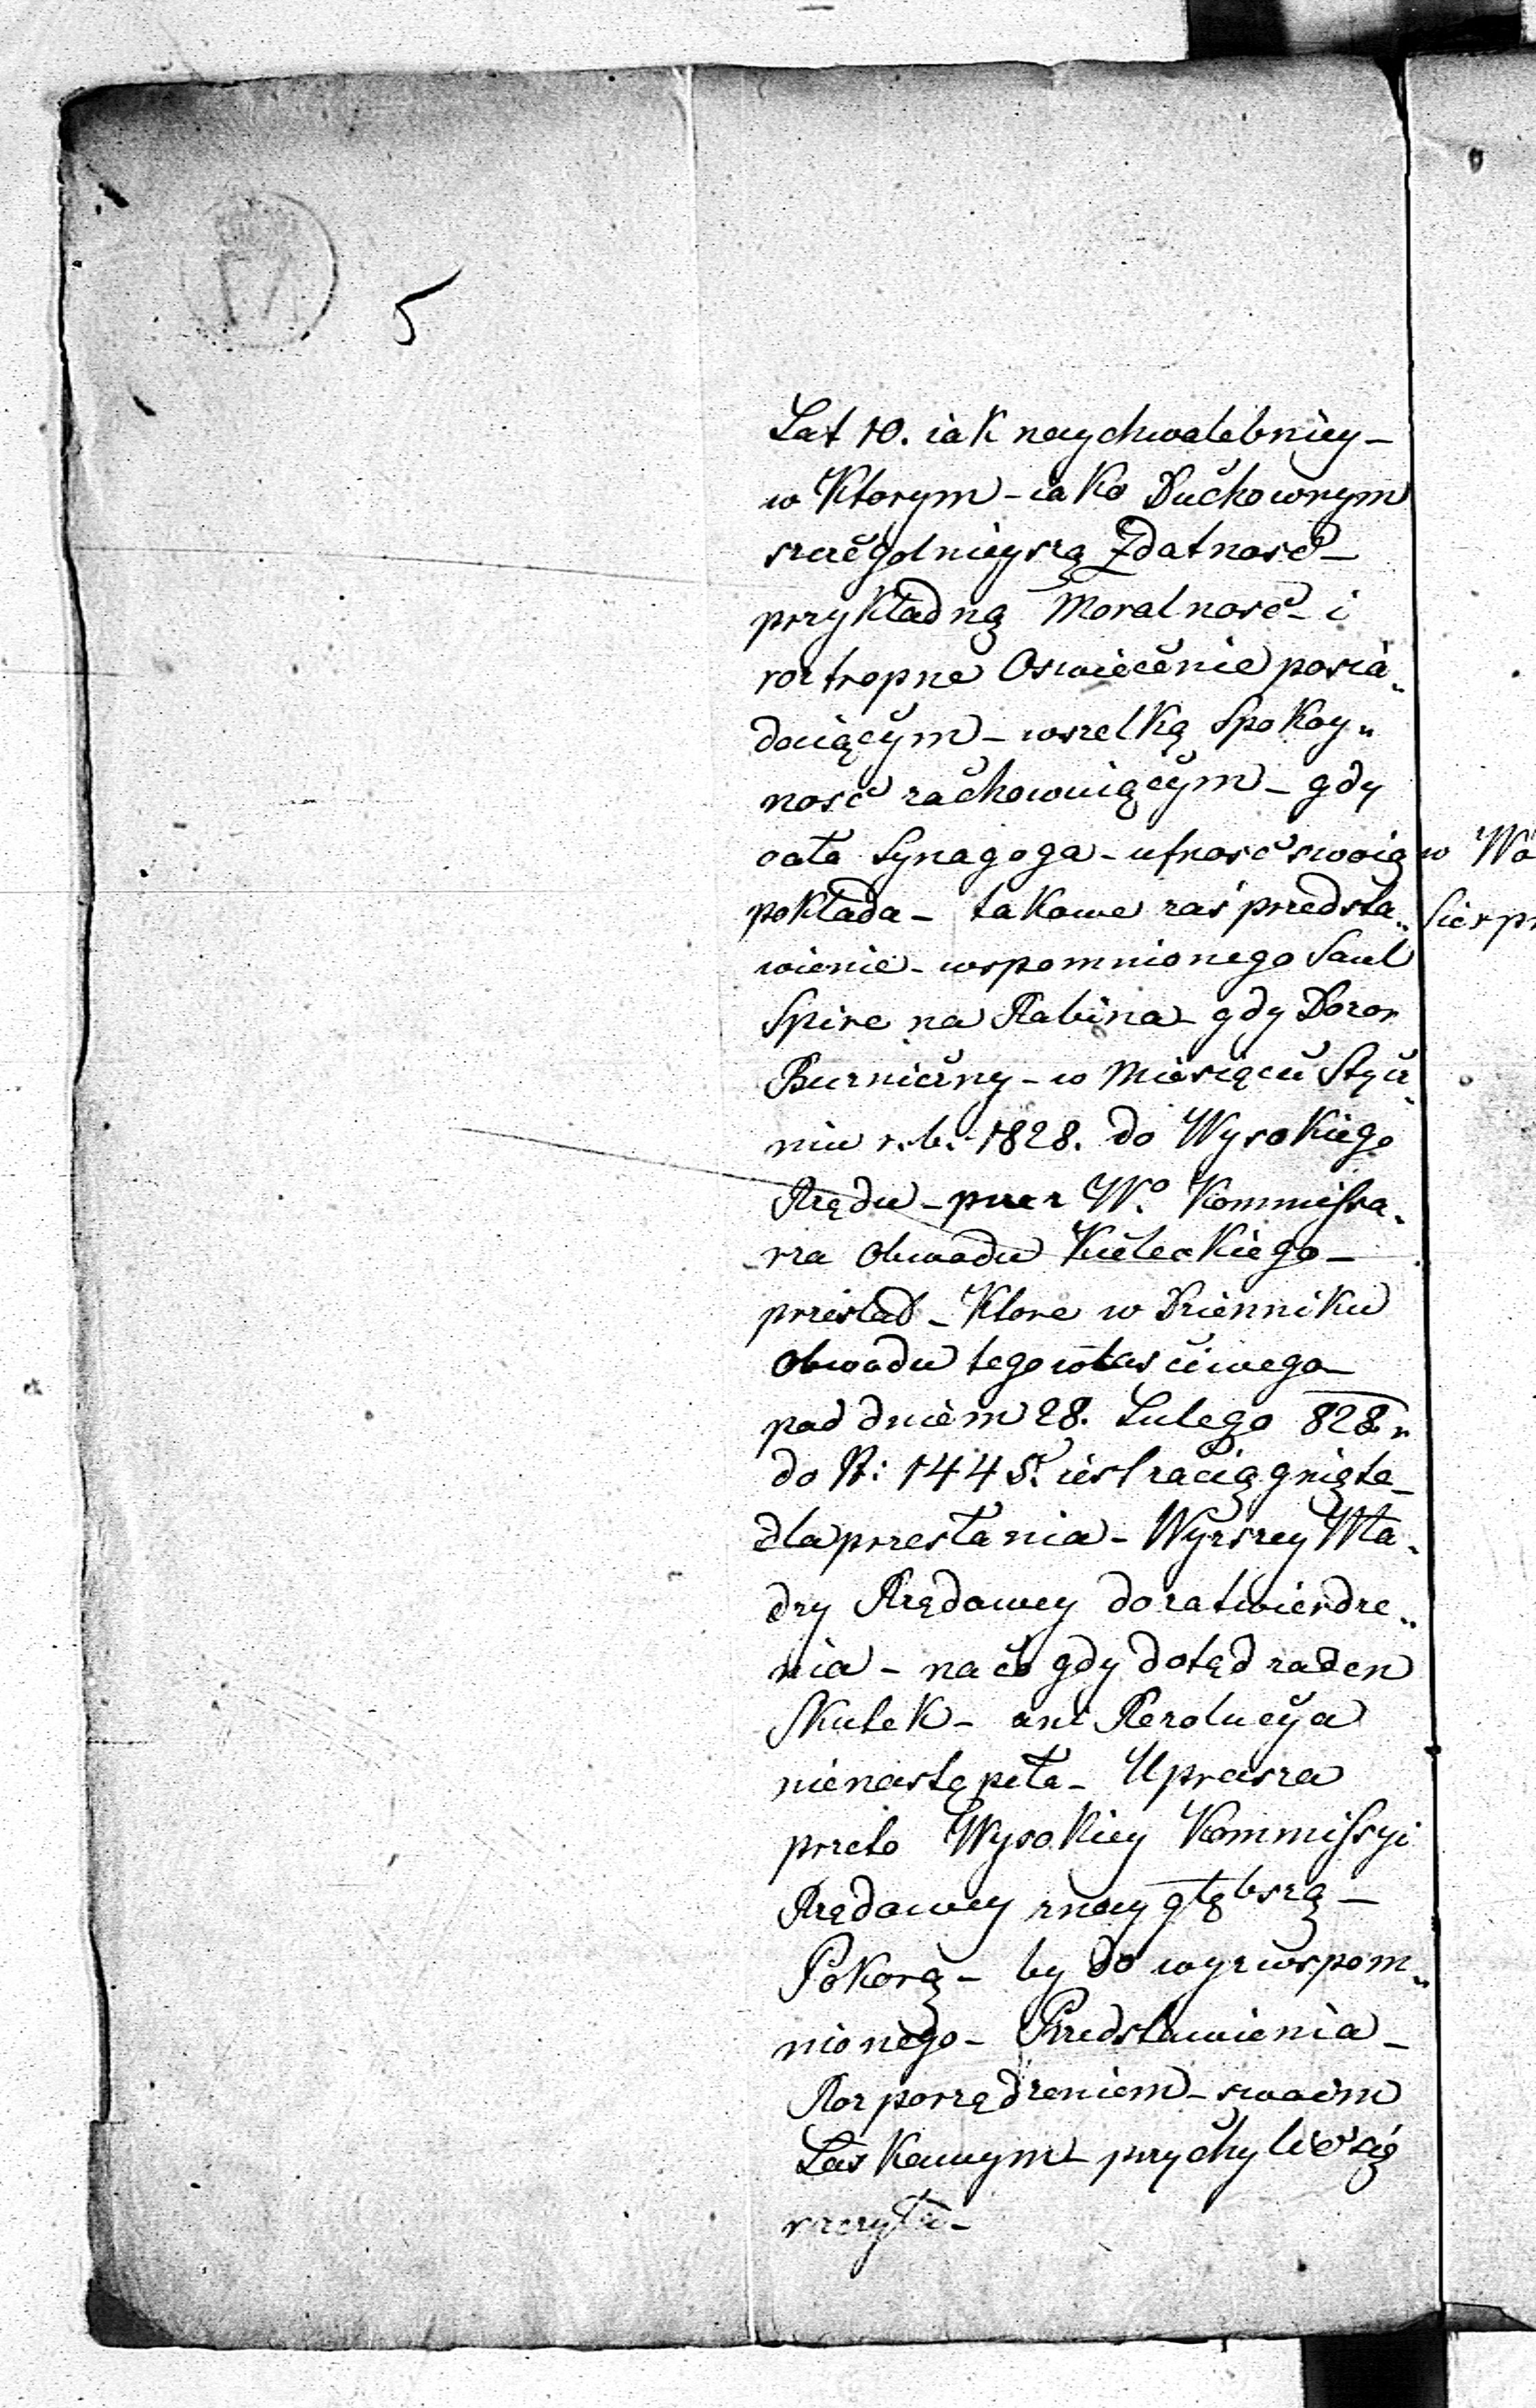 5
Lat 10. iak naychwalebniey –
w Ktorym – iako Duchownym
szczegolnieyszą Zdatność –
przykładną Moralność – i
roztropne Oswiecenie posia„
daiącym – wszelką Spokoy„
ność zachowuiącym – gdy
cała Synagoga – ufność swoią
pokłada – takowe zaś przedsta„
wienie – wspomnionego Saul
Spire na Rabina – gdy Dozor
Burniczny – w Miesiącu Stycz„
niu r. b. 1828. do Wysokiego
Rządu – przez Wº Kommissa„
rza Obwodu Kieleckiego –
przesłał – Ktore w Dzienniku
Obwodu tego własciwego –
pod dniem 28. Lutego 828 r.
do N: 1445. iest zaciągnięte –
dla przesłania – Wyzszey Wła„
dzy Rządowey do zatwierdze„
nia – na co gdy dotąd zaden
Skutek – ani Rezolucya
nienastąpiła – Uprasza
przeto Wysokiey Kommissyi
Rządowey z naygłębszą –
Pokorą – by do wyzwspom„
nionego – Przedstawienia –
Rozporządzeniem – swoim
Łaskawym – przychylić się
raczyła –
w Wa
Sierp